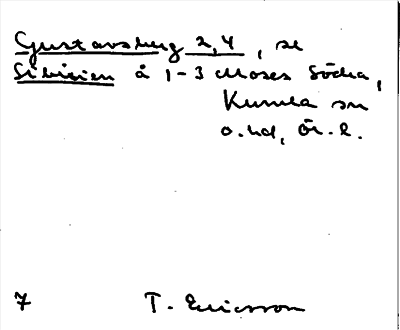 Gustavsberg 2,4, se
Sibirien å 1-3 Mosas Södra,
Kumla sn
o. hd, Ör. l.
7 T. Ericsson